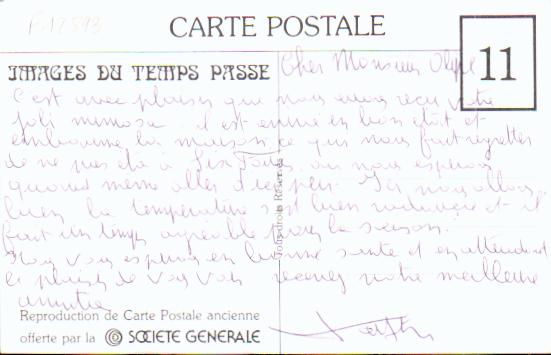 F.12593
CARTE POSTALE
11
IMAGES DU TEMPS PASSE
Cher Monsieur
C'est avec plaisir que nous avons reçu votre
joli mimosa il est arrivé en bon état et
embaume la maison ce qui nous fait regretter
de ne pas être à où nous espérons
quand même aller d'ici peu. Ici nous allons
bien la température est bien radoucie et il
fait un temps agréable pour la saison.
Nous vous espérons en bonne santé et en attendant
le plaisir de vous voir recevez notre meilleure
amitié
Tous droits Réservés
Reproduction de Carte Postale ancienne
offerte par la SOCIETE GENERALE